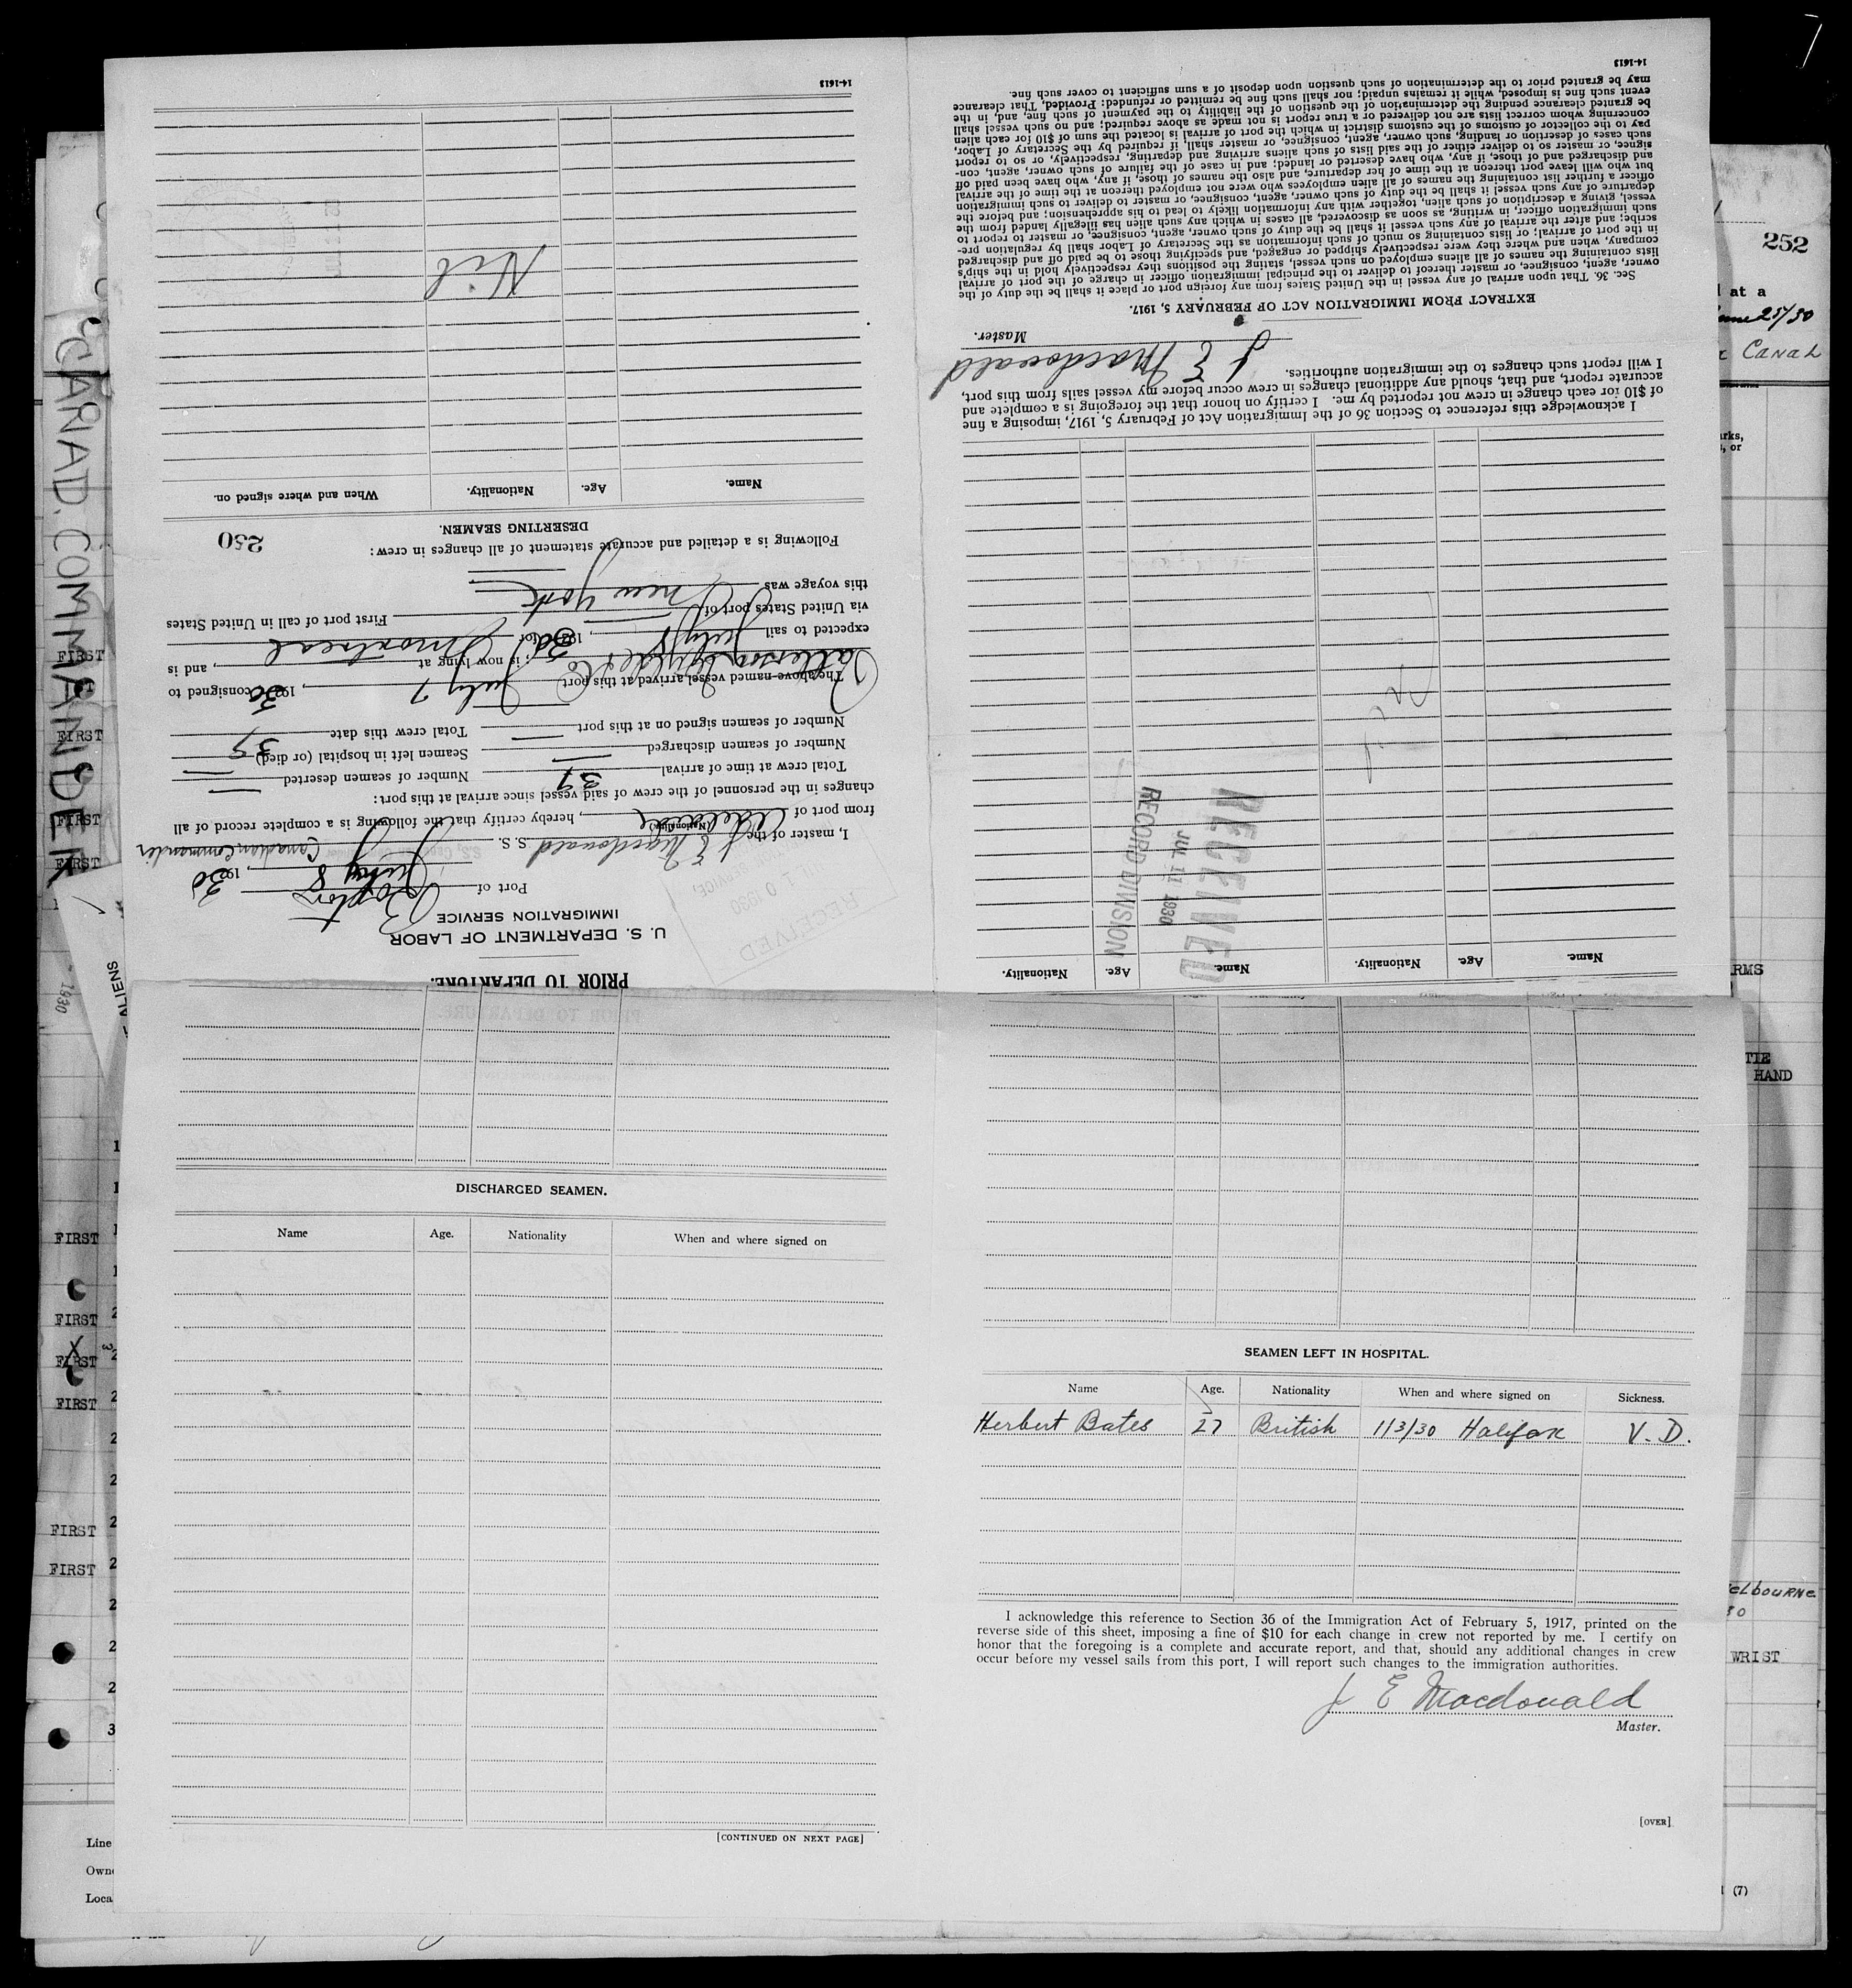 252
at a
June 25/30
CANAL
arks,
, or
CANAD. COMMANDER
14-1613
PRIOR TO DEPARTURE.
U. S. DEPARTMENT OF LABOR
IMMIGRATION SERVICE
RECEIVED
Port of Boston
July 8, 1930
I, master of the J E Macdonald S. S. Canadian Commander
(Nationality)
from port of Adelaide, hereby certify that the following is a complete record of all
changes in the personnel of the crew of said vessel since arrival at this port:
Total crew at time of arrival 37 Number of seamen deserted —
Number of seamen discharged — Seamen left in hospital (or died) —
Number of seamen signed on at this port — Total crew this date 37
The above-named vessel arrived at this port July 7, 1930 consigned to
Patterson Wylde & Co; is now lying at, and is
expected to sail July 8, 1930 for Montreal
via United States port of — First port of call in United States
this voyage was New York
Following is a detailed and accurate statement of all changes in crew:
250
DESERTING SEAMEN.
Name. Age. Nationality. When and where signed on.
Nil
14-1613
Name. Age. Nationality. Name. Age. Nationality.
RECEIVED
JUL 11 1930
RECORD DIVISION
Nil
I acknowledge this reference to Section 36 of the Immigration Act of February 5, 1917, imposing a fine
of $10 for each change in crew not reported by me. I certify on honor that the foregoing is a complete and
accurate report, and that, should any additional changes in crew occur before my vessel sails from this port,
I will report such changes to the immigration authorities.
J E Macdonald
Master.
EXTRACT FROM IMMIGRATION ACT OF FEBRUARY 5, 1917.
Sec. 36. That upon arrival of any vessel in the United States from any foreign port or place it shall be the duty of the
owner, agent, consignee, or master thereof to deliver to the principal immigration officer in charge of the port of arrival
lists containing the names of all aliens employed on such vessel, stating the positions they respectively hold in the ship's
company, when and where they were respectively shipped or engaged, and specifying those to be paid off and discharged
in the port of arrival; or lists containing so much of such information as the Secretary of Labor shall by regulation pre-
scribe; and after the arrival of any such vessel it shall be the duty of such owner, agent, consignee, or master to report to
such immigration officer, in writing, as soon as discovered, all cases in which any such alien has illegally landed from the
vessel, giving a description of such alien, together with any information likely to lead to his apprehension; and before the
departure of any such vessel it shall be the duty of such owner, agent, consignee, or master to deliver to such immigration
officer a further list containing the names of all alien employees who were not employed thereon at the time of the arrival
but who will leave port thereon at the time of her departure, and also the names of those, if any, who have been paid off
and discharged and of those, if any, who have deserted or landed; and in case of the failure of such owner, agent, con-
signee, or master so to deliver either of the said lists of such aliens arriving and departing, respectively, or so to report
such cases of desertion or landing, such owner, agent, consignee, or master shall, if required by the Secretary of Labor,
pay to the collector of customs of the customs district in which the port of arrival is located the sum of $10 for each alien
concerning whom correct lists are not delivered or a true report is not made as above required; and no such vessel shall
be granted clearance pending the determination of the question of the liability to the payment of such fine, and, in the
event such fine is imposed, while it remains unpaid; nor shall such fine be remitted or refunded: Provided, That clearance
may be granted prior to the determination of such question upon deposit of a sum sufficient to cover such fine.
14-1613
DISCHARGED SEAMEN.
Name Age. Nationality When and where signed on
[CONTINUED ON NEXT PAGE]
SEAMEN LEFT IN HOSPITAL.
Name Age. Nationality When and where signed on Sickness.
Herbert Bates 27 British 1/3/30 Halifax V. D.
I acknowledge this reference to Section 36 of the Immigration Act of February 5, 1917, printed on the
reverse side of this sheet, imposing a fine of $10 for each change in crew not reported by me. I certify on
honor that the foregoing is a complete and accurate report, and that, should any additional changes in crew
occur before my vessel sails from this port, I will report such changes to the immigration authorities.
J E Macdonald
Master.
[OVER]
FIRST
FIRST
FIRST
FIRST
1930
ALIENS
FIRST
FIRST
FIRST
FIRST
FIRST
FIRST
ARMS
TIE
HAND
elbourne
30
WRIST
Line
Owne
Loca
(7)